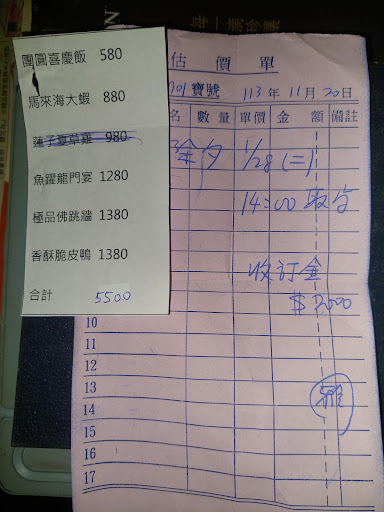 團圓喜慶飯 580
馬來海大蝦 880
蓮子夏草雞 980
魚躍龍門宴 1280
極品佛跳牆 1380
香酥脆皮鴨 1380
合計 5500
估價單
寶號 113年11月20日
名 數量 單價 金額 備註
除夕 1/28 (二)
14:00 取
收訂金
$ 2000
10
11
12
13
14
15
16
17